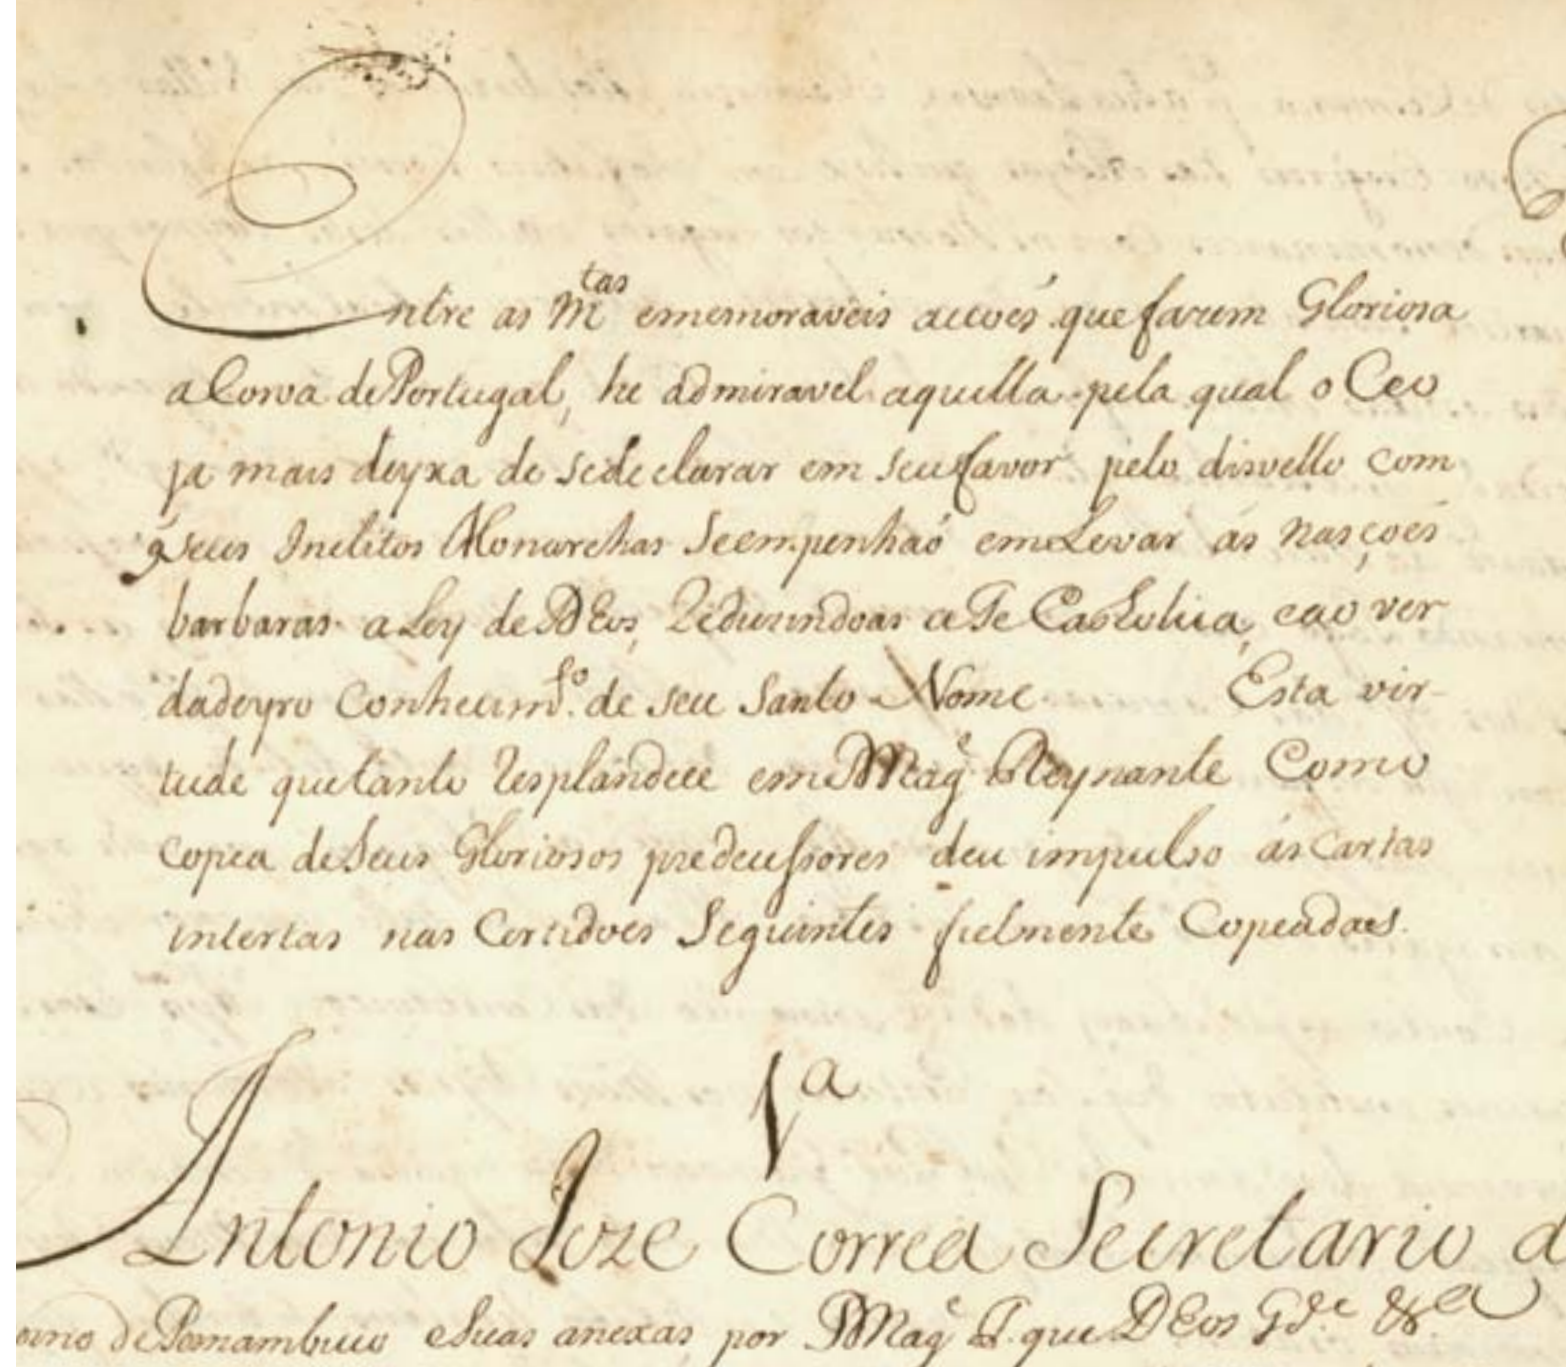 Entre as M.tas ememoraveis accoés que fazem Gloriosa
a Coroa de Portugal, he admiravel aquella pela qual o Ceo
ja mais deyxa de sedeclarar em seu favor pelo disvello com
q̃ seus Inclitos Monarchas Seempenhaó em Levar ás nasçoés
barbaras a Ley de DEos, Reduzindoas a Fe Catholica, eao ver
dadeyro Conhecim.to de seu Santo Nome Esta vir-
tude quetanto Resplandece em S Mag.e Reynante Como
copea de Seus Gloriosos predecessores deu impulso ás Cartas
intertas nas Certidoes Seguintes fielmente Copeadas.
1ª
Antonio Joze Correa Secretario d
erno de Pernambuco eSuas anexas, por S Mag.e F. que DEos G.de &.a